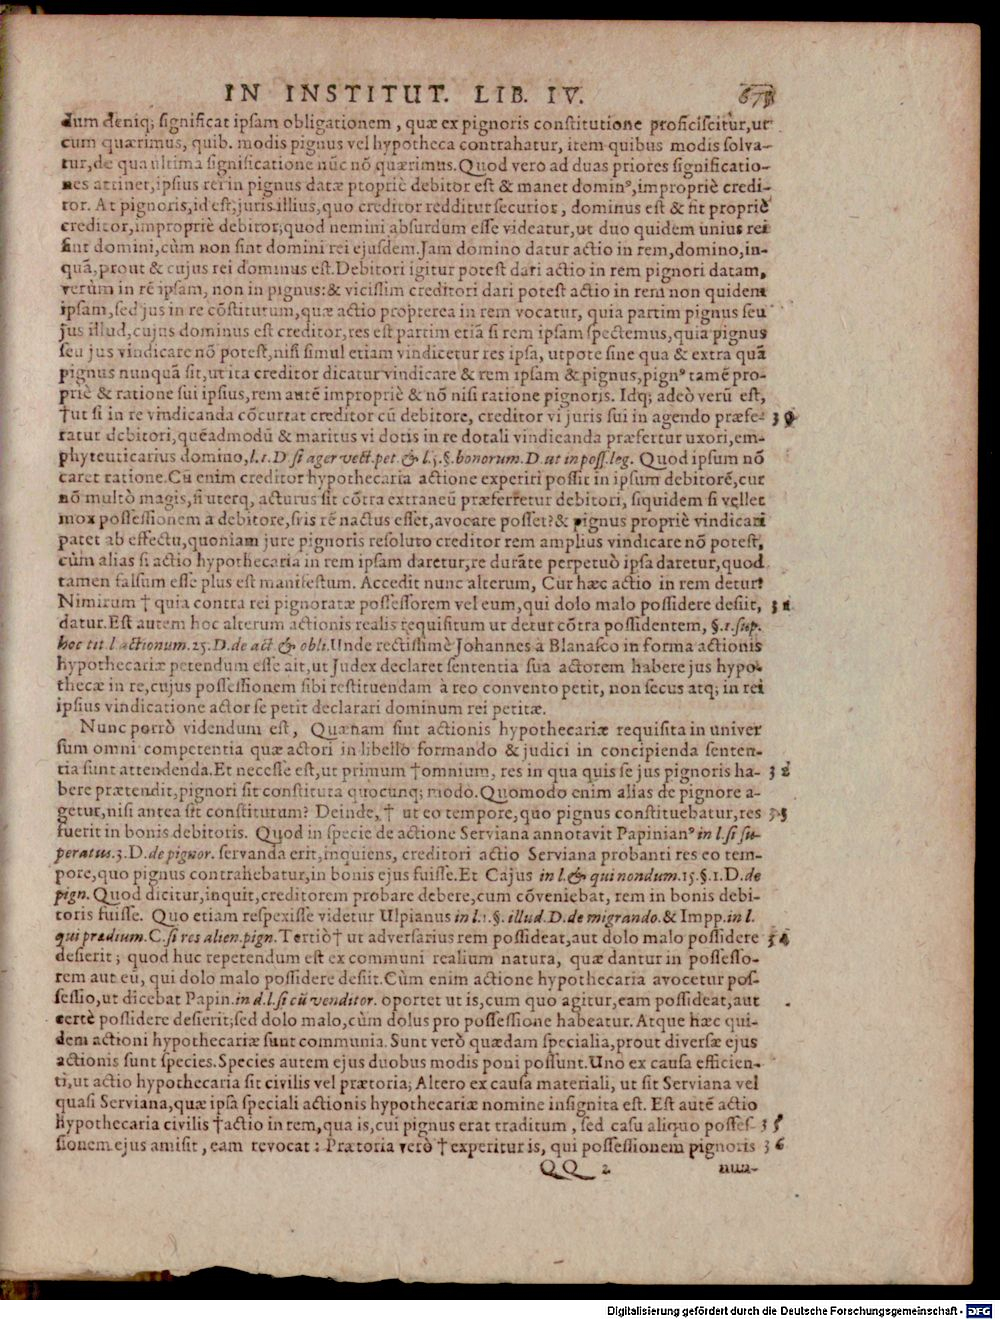 IN INSTITUT. LIB. IV.
dum deniq; significat ipsam obligationem, quæ ex pignoris constitutione proficiscitur, ut
cum quærimus, quib. modis pignus vel hypotheca contrahatur, item quibus modis solva-
tur, de qua ultima significatione nūc nō quærimus. Quod vero ad duas priores significatio-
nes attinet, ipsius rei in pignus datæ propriè debitor est & manet dominꝰ, impropriè credi-
tor. At pignoris, id est, juris illius, quo creditor redditur securior, dominus est & fit propriè
creditor, impropriè debitor; quod nemini absurdum esse videatur, ut duo quidem unius rei
sint domini, cùm non sint domini rei ejusdem. Jam domino datur actio in rem, domino, in-
quā, prout & cujus rei dominus est. Debitori igitur potest dari actio in rem pignori datam,
verùm in rē ipsam, non in pignus: & vicissim creditori dari potest actio in rem non quidem
ipsam, sed jus in re cōstitutum, quæ actio propterea in rem vocatur, quia partim pignus seu
jus illud, cujus dominus est creditor, res est partim etiā si rem ipsam spectemus, quia pignus
seu jus vindicare nō potest, nisi simul etiam vindicetur res ipsa, utpote sine qua & extra quā
pignus nunquā sit, ut ita creditor dicatur vindicare & rem ipsam & pignus, pignꝰ tamē pro-
priè & ratione sui ipsius, rem autē impropriè & nō nisi ratione pignoris. Idq; adeò verū est,
†ut si in re vindicanda cōcurrat creditor cū debitore, creditor vi juris sui in agendo præfe- 30
ratur debitori, quēadmodū & maritus vi dotis in re dotali vindicanda præfertur uxori, em-
phyteuticarius domino, l. 1. D. si ager vect. pet. & l. 5. §. bonorum. D. ut in poss. leg. Quod ipsum nō
caret ratione. Cū enim creditor hypothecaria actione experiri possit in ipsum debitorē, cur
nō multò magis, si uterq, acturus sit cōtra extraneū præferretur debitori, siquidem si vellet
mox possessionem à debitore, si is rē nactus esset, avocare posset? & pignus propriè vindicari
patet ab effectu, quoniam jure pignoris resoluto creditor rem amplius vindicare nō potest,
cùm alias si actio hypothecaria in rem ipsam daretur, re durāte perpetuò ipsa daretur, quod
tamen falsum esse plus est manifestum. Accedit nunc alterum, Cur hæc actio in rem detur?
Nimirum † quia contra rei pignoratæ possessorem vel eum, qui dolo malo possidere desiit, 31
datur. Est autem hoc alterum actionis realis requisitum ut detur cōtra possidentem, §. 1. sup.
hoc tit. l. actionum. 25. D. de act. & obli. Unde rectissimè Johannes à Blanasco in forma actionis
hypothecariæ petendum esse ait, ut Judex declaret sententia sua actorem habere jus hypo-
thecæ in re, cujus possessionem sibi restituendam à reo convento petit, non secus atq; in rei
ipsius vindicatione actor se petit declarari dominum rei petitæ.
Nunc porrò videndum est, Quænam sint actionis hypothecariæ requisita in univer
sum omni competentia quæ actori in libello formando & judici in concipienda senten-
tia sunt attendenda. Et necesse est, ut primum †omnium, res in qua quis se jus pignoris ha- 32
bere prætendit, pignori sit constituta quocunq; modo. Quomodo enim alias de pignore a-
getur, nisi antea sit constitutum? Deinde, † ut eo tempore, quo pignus constituebatur, res
fuerit in bonis debitoris. Quod in specie de actione Serviana annotavit Papinianꝰ in l. si su-
peratus. 3. D. de pignor. servanda erit, inquiens, creditori actio Serviana probanti res eo tem-
pore, quo pignus contrahebatur, in bonis ejus fuisse. Et Cajus in l. & qui nondum. 15. §. 1. D. de
pign. Quod dicitur, inquit, creditorem probare debere, cum cōveniebat, rem in bonis debi-
toris fuisse. Quo etiam respexisse videtur Ulpianus in l. 1. §. illud. D. de migrando. & Impp. in l.
qui prædium. C. si res alien. pign. Tertiò† ut adversarius rem possideat, aut dolo malo possidere 34
desierit; quod huc repetendum est ex communi realium natura, quæ dantur in possesso-
rem aut eū, qui dolo malo possidere desiit. Cùm enim actione hypothecaria avocetur pos-
sessio, ut dicebat Papin. in d. l. si cū venditor. oportet ut is, cum quo agitur, eam possideat, aut
certè possidere desierit; sed dolo malo, cùm dolus pro possessione habeatur. Atque hæc qui-
dem actioni hypothecariæ sunt communia. Sunt verò quædam specialia, prout diversæ ejus
actionis sunt species. Species autem ejus duobus modis poni possunt. Uno ex causa efficien-
ti, ut actio hypothecaria sit civilis vel prætoria; Altero ex causa materiali, ut sit Serviana vel
quasi Serviana, quæ ipsa speciali actionis hypothecariæ nomine insignita est. Est autē actio
hypothecaria civilis †actio in rem, qua is, cui pignus erat traditum, sed casu aliquo posses- 35
sionem ejus amisit, eam revocat: Prætoria verò † experitur is, qui possessionem pignoris 36
QQ 2 nun-
Digitalisierung gefördert durch die Deutsche Forschungsgemeinschaft - DFG